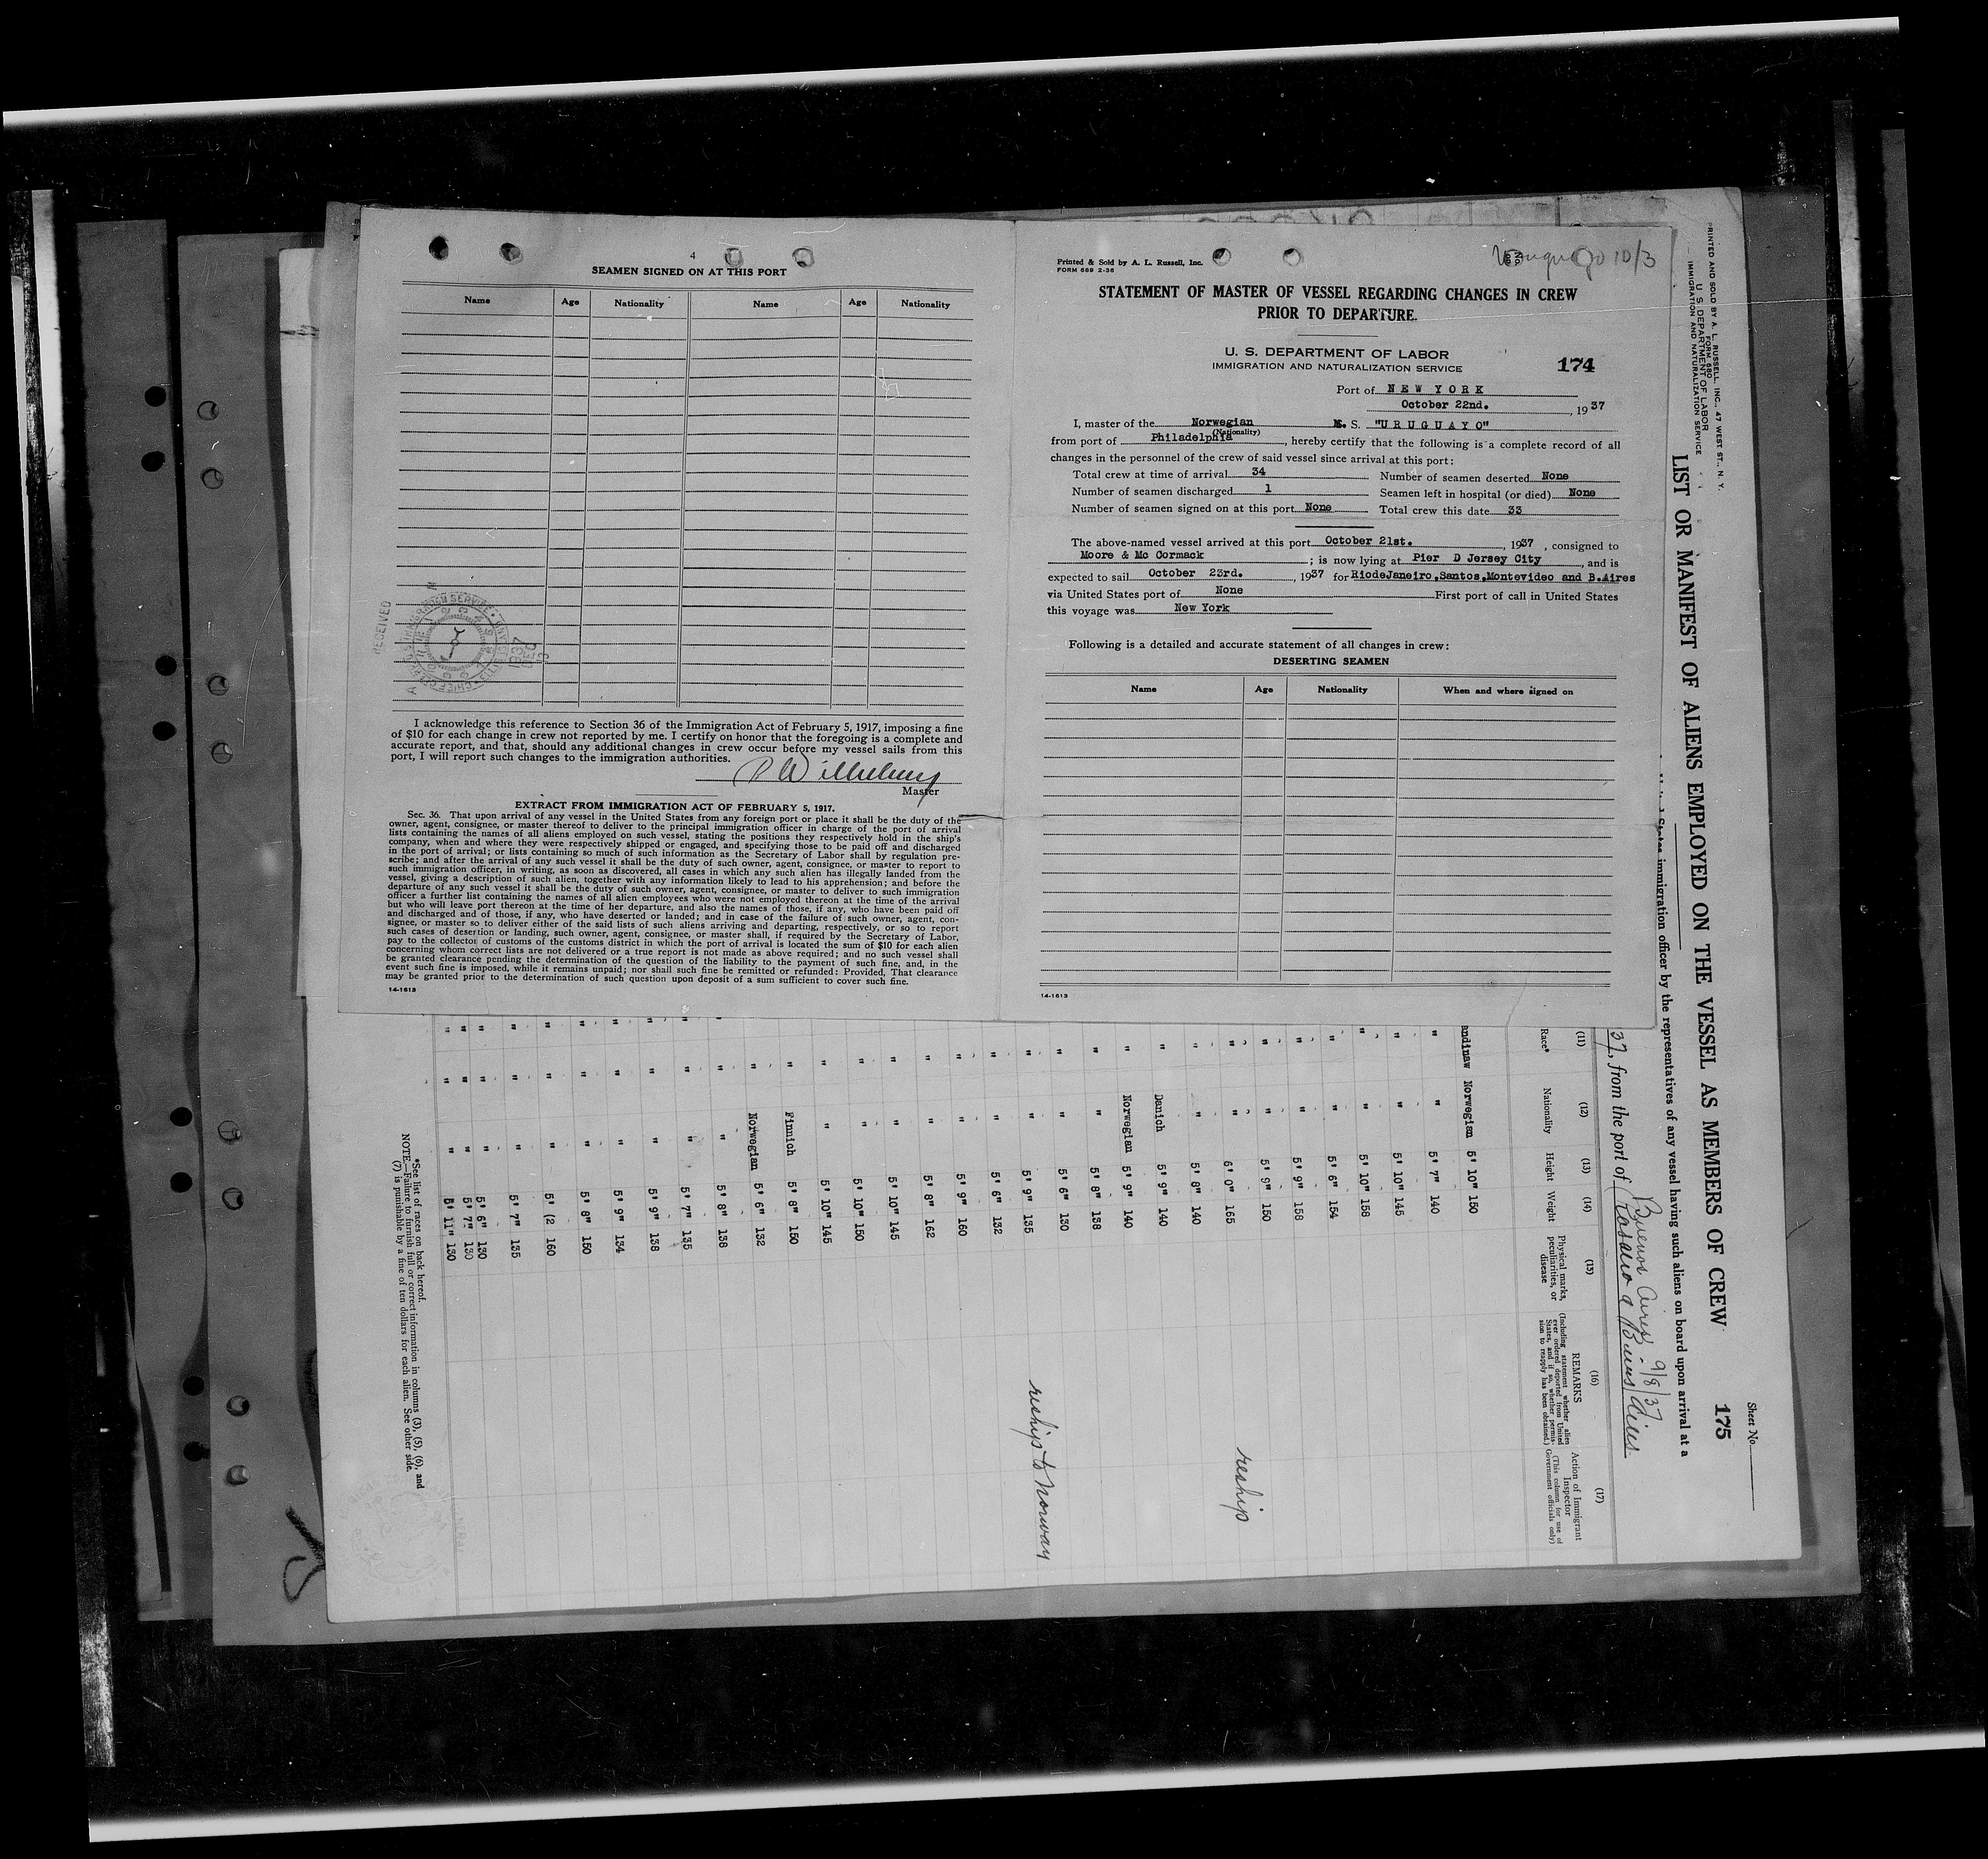 4
SEAMEN SIGNED ON AT THIS PORT
Name Age Nationality Name Age Nationality
RECEIVED
1937 DEC 3
I acknowledge this reference to Section 36 of the Immigration Act of February 5, 1917, imposing a fine
of $10 for each change in crew not reported by me. I certify on honor that the foregoing is a complete and
accurate report, and that, should any additional changes in crew occur before my vessel sails from this
port, I will report such changes to the immigration authorities.
Master
EXTRACT FROM IMMIGRATION ACT OF FEBRUARY 5, 1917.
Sec. 36. That upon arrival of any vessel in the United States from any foreign port or place it shall be the duty of the
owner, agent, consignee, or master thereof to deliver to the principal immigration officer in charge of the port of arrival
lists containing the names of all aliens employed on such vessel, stating the positions they respectively hold in the ship's
company, when and where they were respectively shipped or engaged, and specifying those to be paid off and discharged
in the port of arrival; or lists containing so much of such information as the Secretary of Labor shall by regulation pre-
scribe; and after the arrival of any such vessel it shall be the duty of such owner, agent, consignee, or master to report to
such immigration officer, in writing, as soon as discovered, all cases in which any such alien has illegally landed from the
vessel, giving a description of such alien, together with any information likely to lead to his apprehension; and before the
departure of any such vessel it shall be the duty of such owner, agent, consignee, or master to deliver to such immigration
officer a further list containing the names of all alien employees who were not employed thereon at the time of the arrival
but who will leave port thereon at the time of her departure, and also the names of those, if any, who have been paid off
and discharged and of those, if any, who have deserted or landed; and in case of the failure of such owner, agent, con-
signee, or master so to deliver either of the said lists of such aliens arriving and departing, respectively, or so to report
such cases of desertion or landing, such owner, agent, consignee, or master shall, if required by the Secretary of Labor,
pay to the collector of customs of the customs district in which the port of arrival is located the sum of $10 for each alien
concerning whom correct lists are not delivered or a true report is not made as above required; and no such vessel shall
be granted clearance pending the determination of the question of the liability to the payment of such fine, and, in the
event such fine is imposed, while it remains unpaid; nor shall such fine be remitted or refunded: Provided, That clearance
may be granted prior to the determination of such question upon deposit of a sum sufficient to cover such fine.
14-1613
Printed & Sold by A. L. Russell, Inc.
FORM 689 2-36
Uruguayo 10/3
STATEMENT OF MASTER OF VESSEL REGARDING CHANGES IN CREW
PRIOR TO DEPARTURE.
U. S. DEPARTMENT OF LABOR
IMMIGRATION AND NATURALIZATION SERVICE
174
Port of NEW YORK
October 22nd. , 1937
I, master of the Norwegian M. S. "URUGUAYO"
(Nationality)
from port of Philadelphia , hereby certify that the following is a complete record of all
changes in the personnel of the crew of said vessel since arrival at this port:
Total crew at time of arrival 34 Number of seamen deserted None
Number of seamen discharged 1 Seamen left in hospital (or died) None
Number of seamen signed on at this port None Total crew this date 33
The above-named vessel arrived at this port October 21st. , 1937 , consigned to
Moore & Mc Cormack ; is now lying at Pier D Jersey City , and is
expected to sail October 23rd. , 1937 for RiodeJaneiro,Santos,Montevideo and B.Aires
via United States port of None First port of call in United States
this voyage was New York
Following is a detailed and accurate statement of all changes in crew:
DESERTING SEAMEN
Name Age Nationality When and where signed on
14-1613
PRINTED AND SOLD BY A. L. RUSSELL, INC., 47 WEST ST., N. Y.
FORM 680
U. S. DEPARTMENT OF LABOR
IMMIGRATION AND NATURALIZATION SERVICE
Sheet No.
175
LIST OR MANIFEST OF ALIENS EMPLOYED ON THE VESSEL AS MEMBERS OF CREW
States immigration officer by the representatives of any vessel having such aliens on board upon arrival at a
Buenos Aires 9/8/37
37, from the port of Rosario a Buenos Aires
(11) (12) (13) (14) (15) (16) (17)
Race* Nationality Height Weight Physical marks, peculiarities, or disease REMARKS (Including statement whether alien ever ordered deported from United States, and if so, whether permission to reapply has been obtained.) Action of Immigrant Inspector (This column for use of Government officials only)
andinaw Norwegian 5' 10" 150
" " 5' 7" 140
" " 5' 10" 145
" " 5' 10" 158
" " 5' 6" 154
" " 5' 9" 158
" " 5' 9" 150
" " 6' 0" 165 reship
" " 5' 8" 140
" Danich 5' 9" 140
" Norwegian 5' 9" 140
" " 5' 8" 138
" " 5' 6" 130
" " 5' 9" 135 reship to Norway
" " 5' 6" 132
" " 5' 9" 160
" " 5' 8" 162
" " 5' 10" 145
" " 5' 10" 150
" " 5' 10" 145
" Finnich 5' 8" 150
" Norwegian 5' 6" 132
" " 5' 8" 138
" " 5' 7" 135
" " 5' 9" 138
" " 5' 9" 134
" " 5' 8" 150
" " 5' (2 160
" " 5' 7" 135
" " 5' 6" 130
" " 5' 7" 130
" " 5' 11" 130
*See list of races on back hereof.
NOTE—Failure to furnish full or correct information in columns (3), (5), (6), and
(7) is punishable by a fine of ten dollars for each alien. See other side.